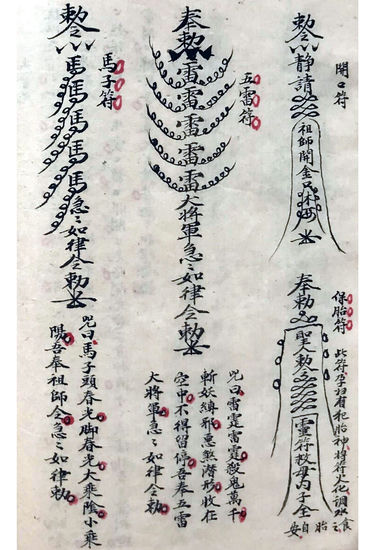 開口符
敕令
靜請
祖師開金口
保胎符
此符孕婦有犯胎神將符火化調水食之胎自安
奉敕
聖敕令
靈符救母子全
五雷符
奉敕
雷雷雷雷雷大將軍急急如律令敕
咒曰雷霆雷霆殺鬼萬千
斬妖縛邪惡煞潛形收在
空中不得留停吾奉五雷
大將軍急急如律令敕
馬子符
敕令
馬馬馬馬馬急急如律令敕
咒曰馬子頭春光腳春光大乘陰小乘
陽吾奉祖師令急急如律敕